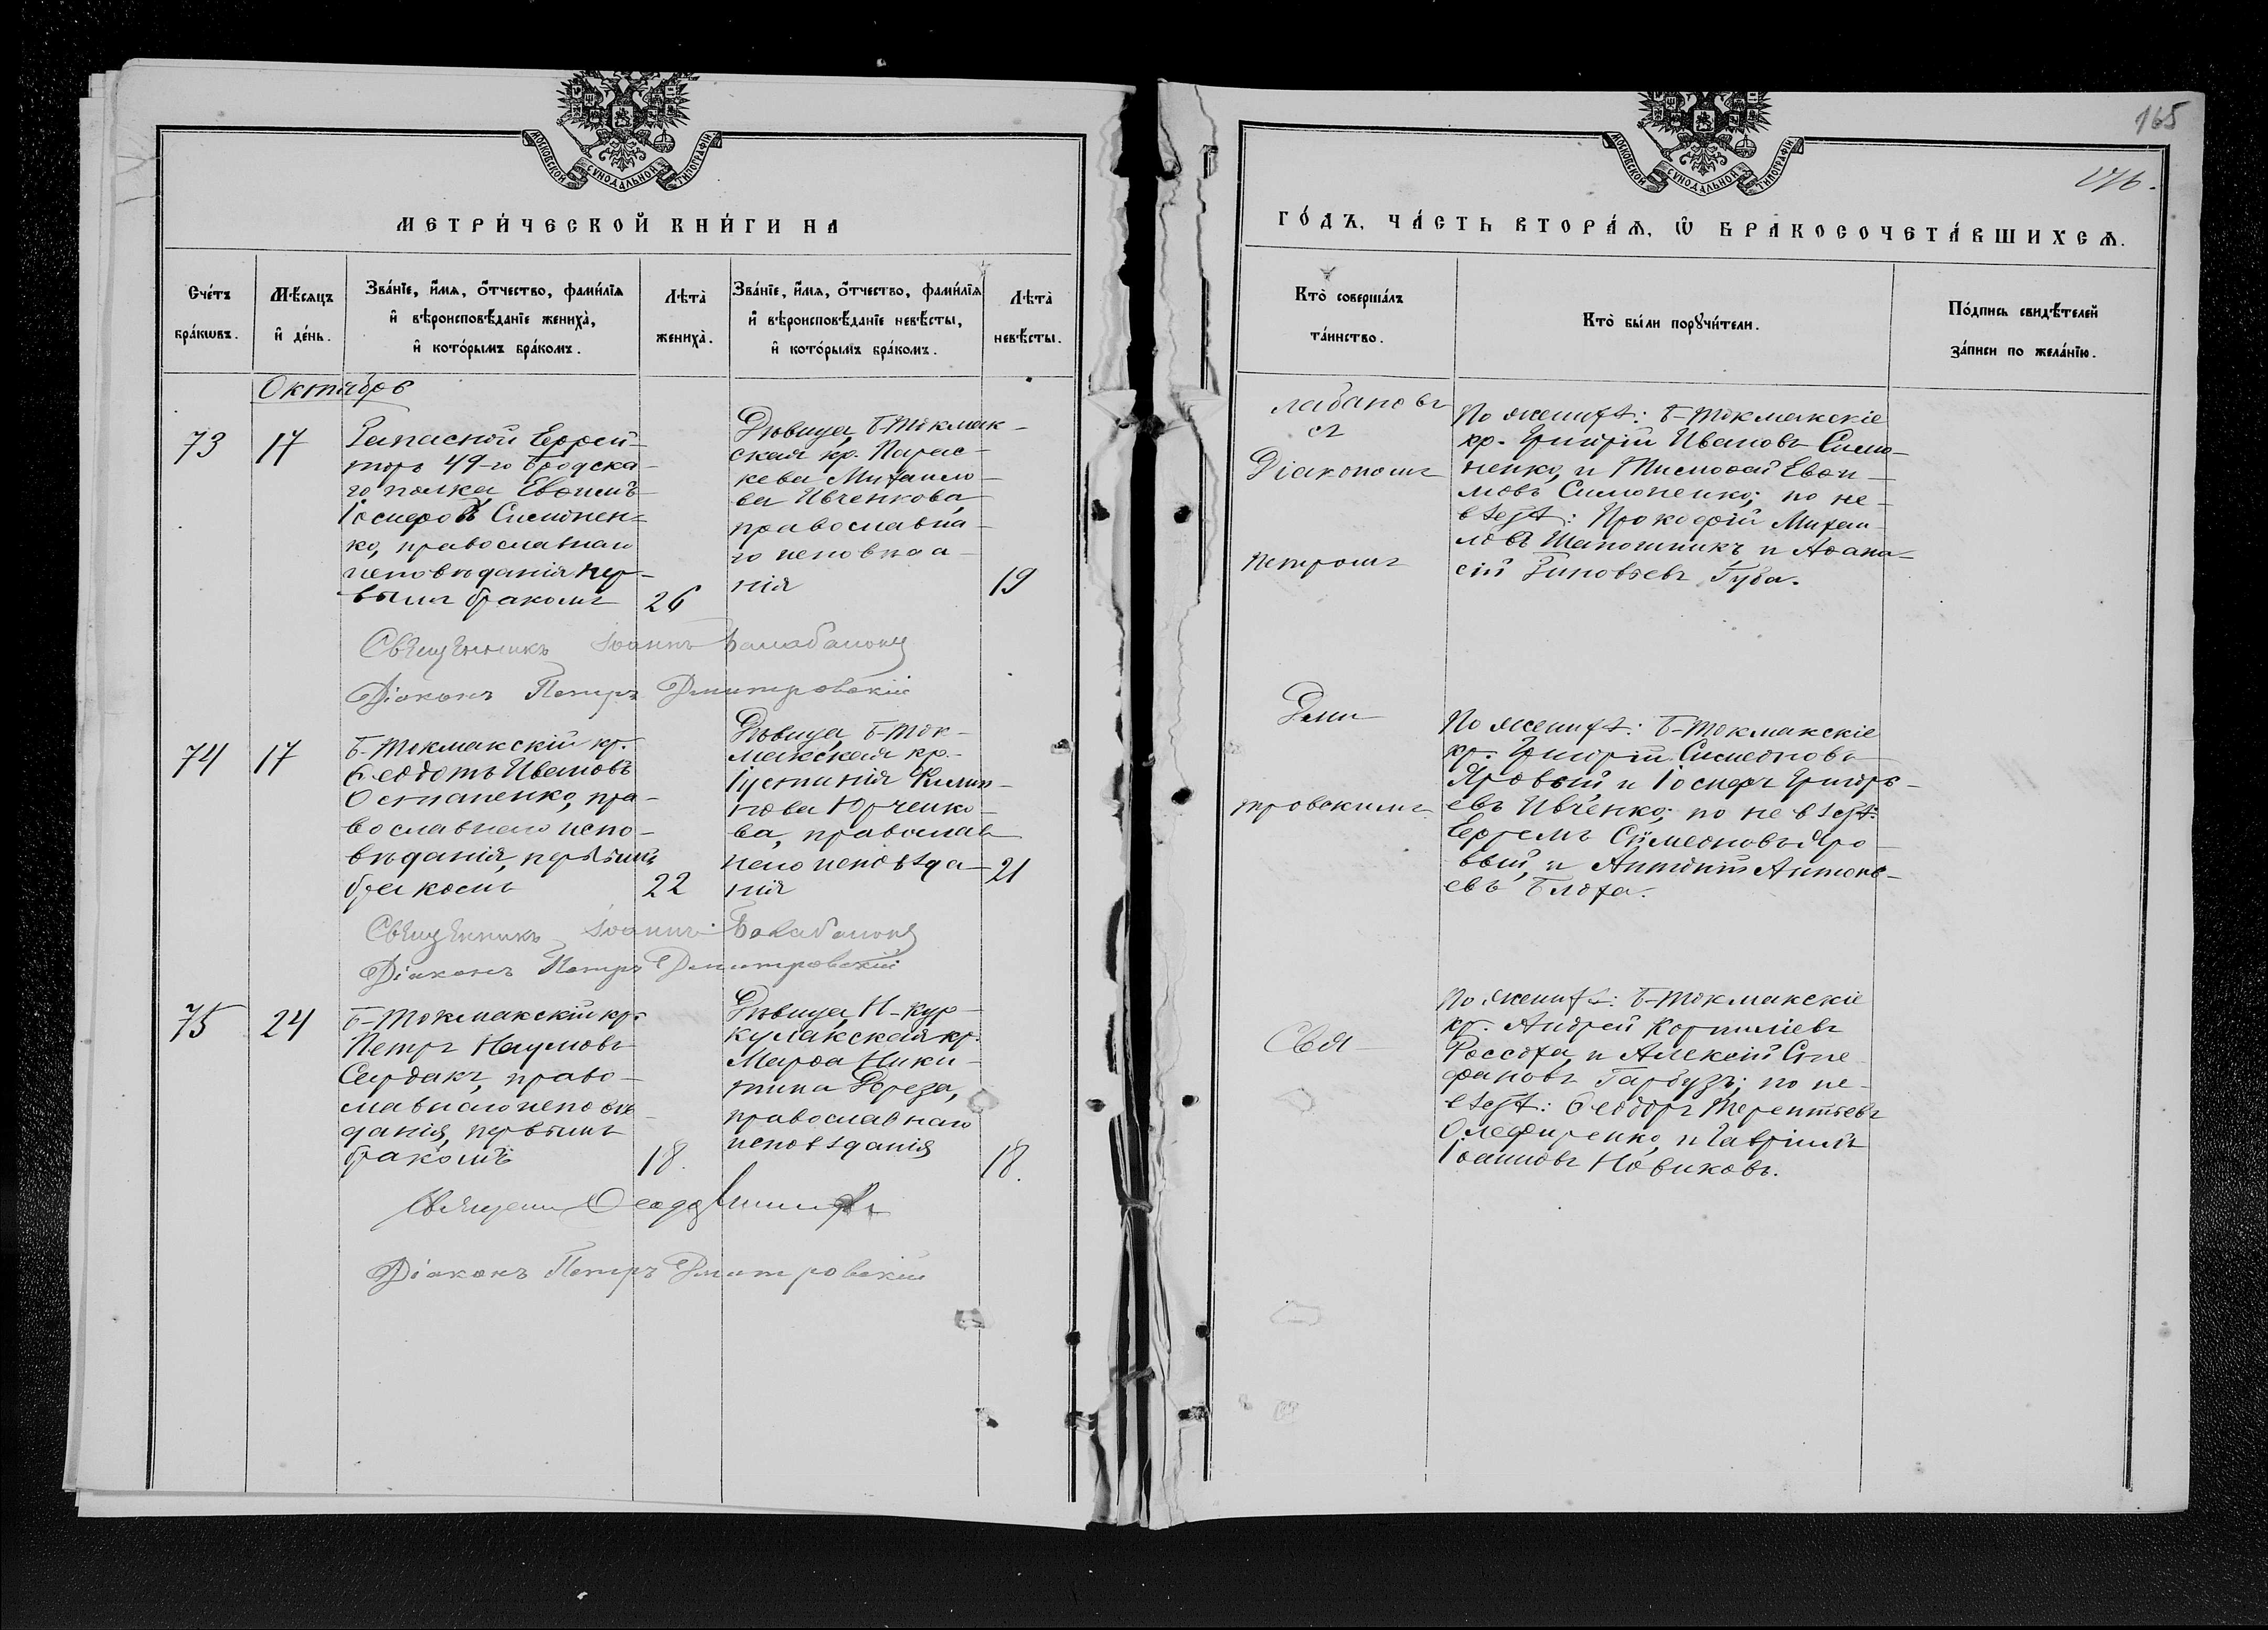 МОСКОВСКОЙ СѴНОДАЛЬНОЙ ТИПОГРАФІИ
МЕТРИ́ЧЕСКОЙ КНИ́ГИ НА
Сче́тъ бра́кѡвъ.
Мѣ́сяцъ и҆ де́нь.
Зва́нїе, и҆́мѧ, ѻ҆́тчество, фамі́лїѧ
и҆ вѣроисповѣ́данїе жениха̀,
и҆ кото́рымъ бра́комъ.
Лѣта̀ жениха̀.
Зва́нїе, и҆́мѧ, ѻ҆́тчество, фамі́лїѧ
и҆ вѣроисповѣ́данїе невѣ́сты,
и҆ кото́рымъ бра́комъ.
Лѣта̀ невѣ́сты.
Октябрь
73
17
Запасной Ефрей-
торъ 49-го Бродска-
го полка Евѳимъ
Іосифовъ Симонен-
ко, православнаго
исповѣданія пер-
вымъ бракомъ
26
Дѣвица, Б-Токмак-
ская кр. Парас-
кева Михаило-
ва Ивченкова,
православна-
го
нія
19
Священникъ Іоаннъ Балабановъ
Діаконъ Петръ Дмитровскій
74
17
Б-Токмакскій кр.
Ѳеодотъ Ивановъ
Остапенко, пра-
вославнаго испо-
вѣданія, первымъ
бракомъ
22
Дѣвица, Б-Ток-
макская кр.
Іустинія Филип-
пова Юрченко-
ва, православ-
наго исповѣда-
нія
21
Священникъ Іоаннъ Балабановъ
Діаконъ Петръ Дмитровскій
75
24
Б-Токмакскій кр.
Петръ Наумовъ
Сердакъ, право-
славнаго исповѣ-
данія, первымъ
бракомъ
18.
Дѣвица, Н-Кур-
кулакская кр.
Марѳа Ники-
тина Дереза,
православнаго
исповѣданія
18.
Діаконъ Петръ Дмитровскій
165
МОСКОВСКОЙ СѴНОДАЛЬНОЙ ТИПОГРАФІИ
ГО́ДЪ, ЧА́СТЬ ВТОРА́Ѧ, Ѽ БРАКОСОЧЕТА́ВШИХСѦ.
Кто̀ соверша́лъ та́инство.
Кто̀ бы́ли порꙋчи́тели.
По́дпись свидѣ́телей
за́писи по жела́нїю.
лабановъ
съ
Діакономъ
Петромъ
По женихѣ: Б-Токмакскіе
кр. Григорій Ивановъ Симо-
ненко, и Тимоѳей Евѳи-
мовъ Симоненко; по не-
вѣстѣ: Прокофій Михаи-
ловъ Шапошникъ, и Аѳана-
сій Зиновьевъ Губа.
Дми-
тровскимъ
По женихѣ: Б-Токмакскіе
кр. Григорій Симеоновъ
Яровый и Іосифъ Григорь-
евъ Ивченко; по невѣстѣ:
Ефремъ Симеоновъ Яро-
вый, и Антоній Антонь-
евъ Блоха.
Свя-
По женихѣ: Б-Токмакскіе
кр. Андрей Корниліевъ
Россоха, и Алексій Сте-
фановъ Гарбузъ; по не-
вѣстѣ: Ѳеодоръ Терентьевъ
Олефиренко, и Гавріилъ
Іоанновъ Новиковъ.